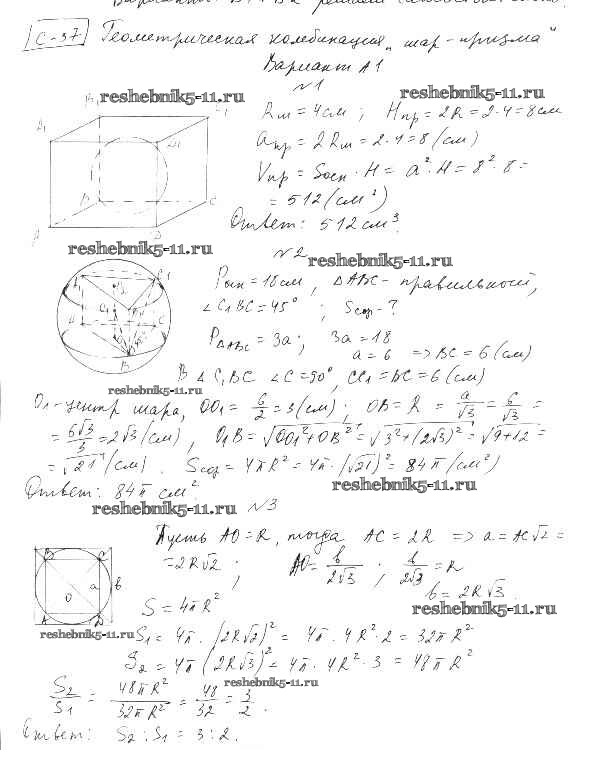 С-37 Геометрическая комбинация „шар-призма"
Вариант А1
№1
reshebnik5-11.ru
reshebnik5-11.ru
Rш = 4см ; Hпр = 2R = 2·4 = 8см
aпр = 2Rш = 2·4 = 8 (см)
Vпр = Sосн · H = a²·H = 8²·8 =
= 512 (см³)
Ответ: 512 см³.
A1 B1 C1 D1 A B C D
reshebnik5-11.ru
№2
reshebnik5-11.ru
Pосн = 18см , ΔABC - правильный,
∠C1BC = 45° ; Sсф - ?
PΔABC = 3a ; 3a = 18
a = 6 => BC = 6 (см)
В ∠ C1BC ∠C = 90°, CC1 = BC = 6 (см)
reshebnik5-11.ru
O1 - центр шара, OO1 = 6/2 = 3 (см) ; OB = R = a/√3 = 6/√3 =
= 6√3/3 = 2√3 (см) , O1B = √OO1² + OB² = √3² + (2√3)² = √9+12 =
= √21 (см) . Sсф = 4πR² = 4π·(√21)² = 84π (см²)
Ответ: 84π см².
reshebnik5-11.ru
reshebnik5-11.ru
№3
Пусть AO = R, тогда AC = 2R => a = AC√2 =
= 2R√2 ; AO = b/2√3 ; b/2√3 = R
b = 2R√3 .
S = 4πR²
B C a b O A D
reshebnik5-11.ru
reshebnik5-11.ru
S1 = 4π · (2R√2)² = 4π · 4R²·2 = 32πR²
S2 = 4π (2R√3)² = 4π · 4R² · 3 = 48πR²
reshebnik5-11.ru
S2/S1 = 48πR²/32πR² = 48/32 = 3/2 .
Ответ: S2 : S1 = 3 : 2.